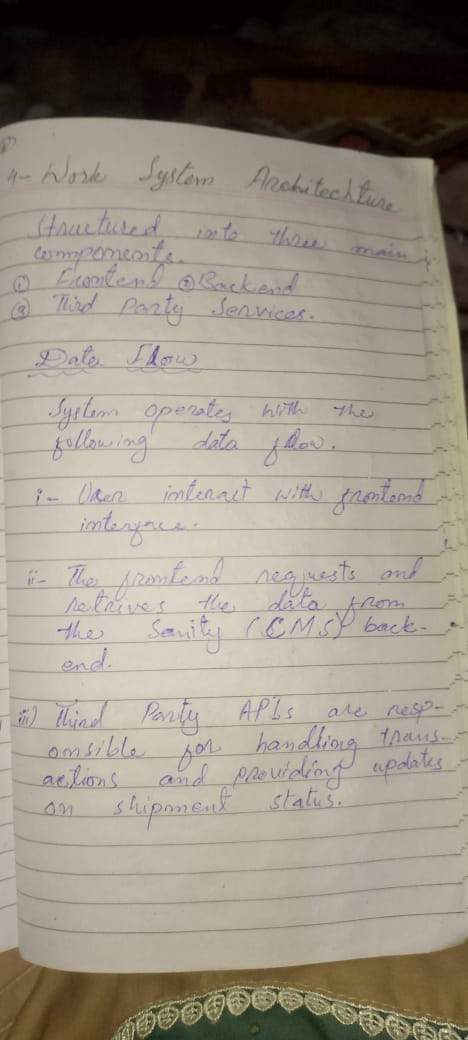 4- Work System Architechture
Structured into three main
components.
① Frontend ② Backend
③ Third Party Services.
Data Flow
System operates with the
following data flow.
i- User interact with frontend
interface.
ii- The frontend requests and
retrives the data from
the Sanity (CMS) back-
end.
iii) Third Party APIs are resp-
onsible for handling trans-
actions and providing updates
on shipment status.